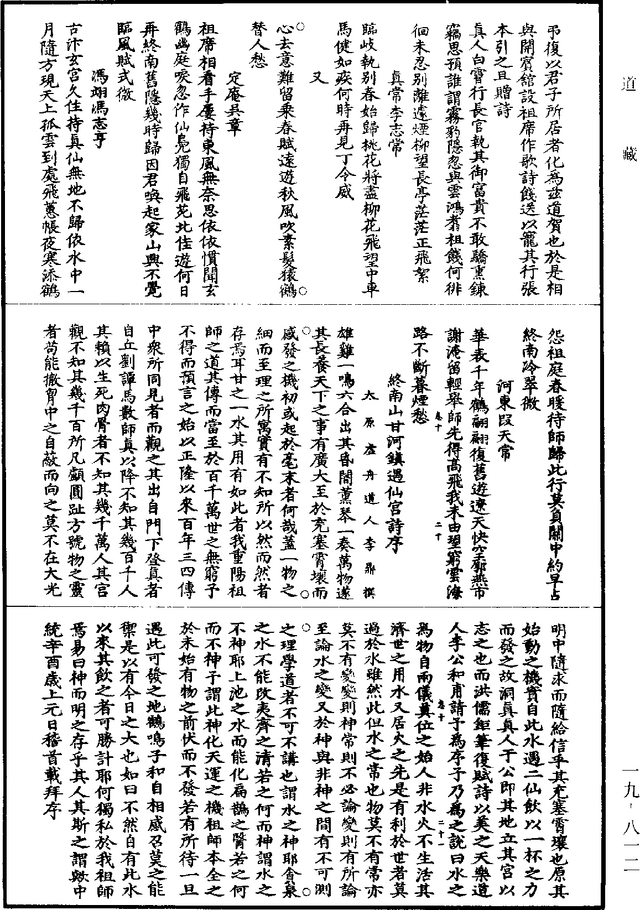 道藏
弔復以君子所居者化為茲道賀也於是相
與開賓館設祖席作歌詩餞送以寵其行張
本引之且贈詩
真人白霄行長官執其御富貴不敢驕熏鍊
竊思預誰謂霧豹隱忍與雲鴻翥祖餞何徘
徊未忍別離遠煙柳望長亭茫茫正飛絮
真常李志常
臨岐執別春始歸桃花將盡柳花飛望中車
馬健如疾何時再見丁令威
又
心去意難留乘春賦遠遊秋風吹素髮猿鶴
替人愁
定庵吳章
祖席相看手屢持東風無奈思依依慣聞玄
鶴幽庭唳忽作仙鳧獨自飛茫此住遊何日
再終南舊隱幾時歸因君喚起家山興不覺
臨風賦式微
馮翊馮志亨
古汴玄宮久住持真仙無地不歸依水中一
月隨方現天上孤雲到處飛蕙帳夜寒添鶴
怨祖庭春暖待師歸此行莫負關中約早占
終南冷翠微
河東段天常
華表千年鶴翩翩復舊遊遼天快空霸燕市
謝淹留輕舉師先得高飛我未由望窮雲海
路不斷暮煙愁
卷十 二十
終南山甘河鎮遇仙宮詩序
太原虛舟道人李鼎撰
雄雞一鳴六合出其昏闇薰琴一奏萬物遂
其長養天下之事有廣大至於充塞霄壤而
感發之機初或起於毫末者何哉蓋一物之
細而至理之所寓實有不知所以然而然者
存焉耳甘之一水其用有如此者我重陽祖
師之道其傳而當至於百千萬世之無窮予
不得而預言之始以正隆以來百年三四傳
中衆所同見者而觀之其出自門下登真者
自丘劉譚馬數師真以降不知其幾百千人
其賴以生死肉骨者不知其幾千萬人其宮
觀不知其幾千百所凡顱圓趾方號物之靈
者苟能撤胷中之自蔽而向之莫不在大光
明中隨求而隨給信乎其充塞霄壤也原其
始動之機實自此水遇二仙飲以一杯之力
而發之故洞真真人于公即其地立其宮以
志之也而洪儒鉅筆復賦詩以美之天樂道
人李公和甫請予為序予乃為之說曰水之
卷十 二十一
為物自兩儀奠位之始人非水火不生活其
濟世之用水又居火之先是有利於世者莫
過於水雖然此但水之常也物莫不有常亦
莫不有變變則神常則不必論變則有所論
至論水之變又於神與非神之間有不可測
之理學道者不可不講也謂水之神耶貪泉
之水不能改夷齊之清若之何而神謂水之
不神耶上池之水而能化扁鵲之腎若之何
而不神子謂此神化天運之機祖師本全之
於未始有物之前伏而不發若有所待一旦
遇此可發之地鶴鳴子和自相感召莫之能
禦是以有今日之大也如曰不然自有此水
以來其飲之者可勝計耶何獨私於我祖師
焉易曰神而明之存乎其人其斯之謂歟中
統辛酉歲上元日稽首載拜序
一九·八一二